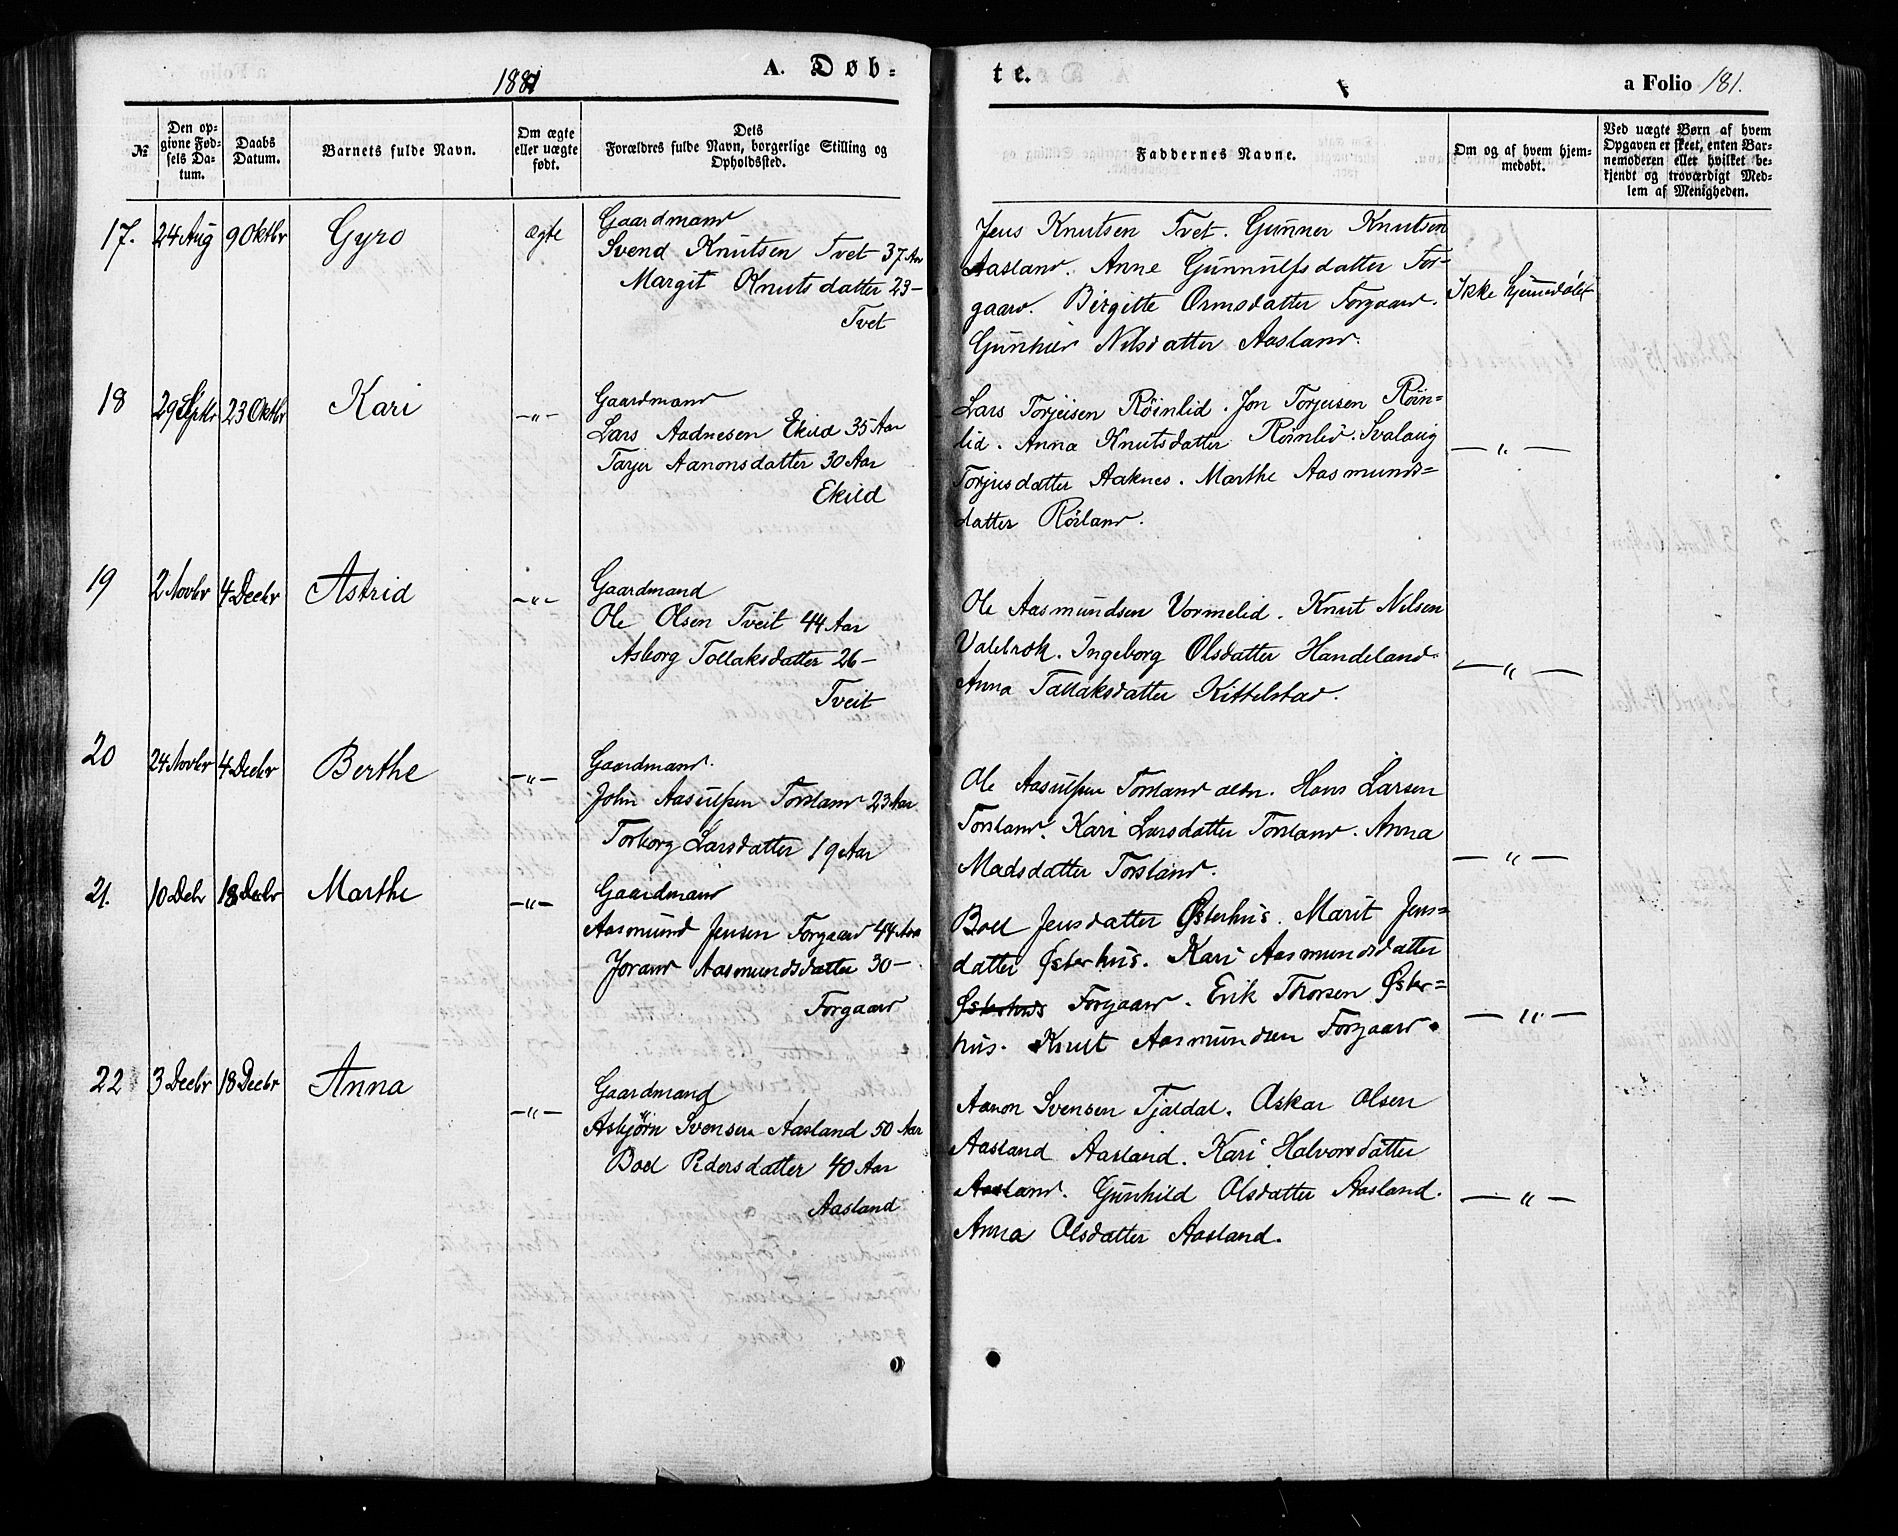 1881
A. Døb-
№
Den op-
givne Fød-
sels Da-
tum.
Daabs
Datum.
Barnets fulde Navn.
Om ægte
eller uægte
født.
Dets
Forældres fulde Navn, borgerlige Stilling og
Opholdssted.
17.
24 Aug
9 Oktbr
Gyro
ægte
Gaardmand
Svend Knutsen Tvet 37 Aar
Margit Knutsdatter 23 –
Tvet
18
29 Septbr
23 Oktbr
Kari
–„–
Gaardmand
Lars Aadnesen Ekild 35 Aar
Tarjer Aanonsdatter 30 Aar
Ekild
19
2 Novbr
4 Decbr
Astrid
–„–
Gaardmand
Ole Olsen Tveit 44 Aar
Asborg Tollaksdatter 26 –
Tveit
20
24 Novbr
4 Decbr
Berthe
–„–
Gaardmand.
John Aasulfsen Torsland 23 Aar
Torborg Larsdatter 19 Aar
21.
10 Debr
18 Decbr
Marthe
–„–
Gaardmand
Aasmund Jensen Forgaard 44 Aar
Jorand Aasmundsdatter 30 –
Forgaard
22
3 Decbr
18 Decbr
Anna
–„–
Gaardmand
Asbjørn Svensen Aasland 50 Aar
Boel Pedersdatter 40 Aar
Aasland
te.
a Folio 181.
Faddernes Navne.
Om og af hvem hjem-
medøbt.
Ved uægte Børn af hvem
Opgaven er skeet, enten Bar-
nemoderen eller hvilket be-
kjendt og troværdigt Med-
lem af Menigheden.
Jens Knutsen Tvet. Gunner Knutsen
Aasland. Anne Gunnulfsdatter For-
gaard. Birgitte Ormsdatter Forgaard.
Gunhild Nilsdatter Aasland.
Ikke hjemmedøbt
Lars Torjeisen Röinlid. Jon Torjeisen Röin-
lid. Anna Knutsdatter Röinlid. Svalaug
Torjusdatter Aaknes. Marthe Aasmunds-
datter Rösland.
–„–
Ole Aasmundsen Vormelid. Knut Nilsen
Valebrok. Ingeborg Olsdatter Handeland.
Anna Tallaksdatter Kittelstad.
–„–
Ole Aasulfsen Torsland Hans Larsen
Torsland. Kari Larsdatter Torsland. Anna
Madsdatter Torsland.
–„–
Boel Jensdatter Østerhus. Marit Jens-
datter Østerhus. Kari Aasmundsdatter
Østerhus Forgaard. Erik Thorsen Øster-
hus. Knut Aasmundsen Forgaard.
–„–
Aanon Svensen Tjaldal. Oskar Olsen
Aasland Aasland. Kari Halvorsdatter
Aasland. Gunhild Olsdatter Aasland.
Anna Olsdatter Aasland.
–„–